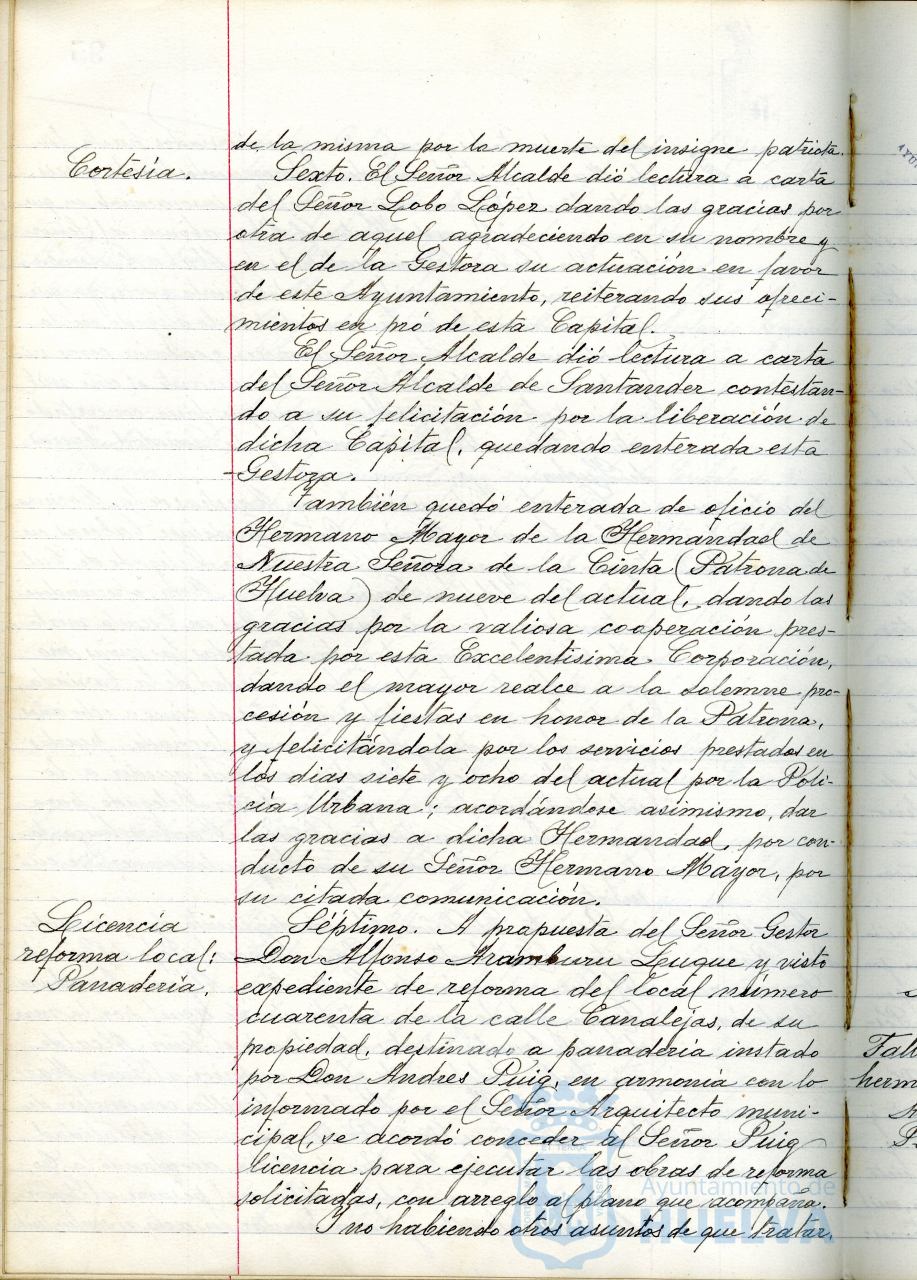 de la misma por la muerte del insigne patriota.
Cortesía.
Sexto. El Señor Alcalde dió lectura a carta
del Señor Lobo López dando las gracias por
otra de aquel agradeciendo en su nombre y
en el de la Gestora su actuación en favor
de este Ayuntamiento, reiterando sus ofreci-
mientos en pró de esta Capital.
El Señor Alcalde dió lectura a carta
del Señor Alcalde de Santander contestan-
do a su felicitación por la liberación de
dicha Capital, quedando enterada esta
Gestora.
También quedó enterada de oficio del
Hermano Mayor de la Hermandad de
Nuestra Señora de la Cinta (Patrona de
Huelva) de nueve del actual, dando las
gracias por la valiosa cooperación pres-
tada por esta Excelentisima Corporación,
dando el mayor realce a la solemne pro-
cesión y fiestas en honor de la Patrona,
y felicitándola por los servicios prestados en
los dias siete y ocho del actual por la Poli-
cía Urbana; acordándose asimismo dar
las gracias a dicha Hermandad, por con-
ducto de su Señor Hermano Mayor, por
su citada comunicación.
Licencia
reforma local:
Panadería.
Séptimo. A propuesta del Señor Gestor
Don Alfonso Aramburu Luque y visto
expediente de reforma del local número
cuarenta de la calle Canalejas, de su
propiedad, destinado a panadería instado
por Don Andres Puig, en armonía con lo
informado por el Señor Arquitecto muni-
cipal, se acordó conceder al Señor Puig
licencia para ejecutar las obras de reforma
solicitadas, con arreglo al plano que acompaña.
Y no habiendo otros asuntos de que tratar,
Ayuntamiento de
HUELVA